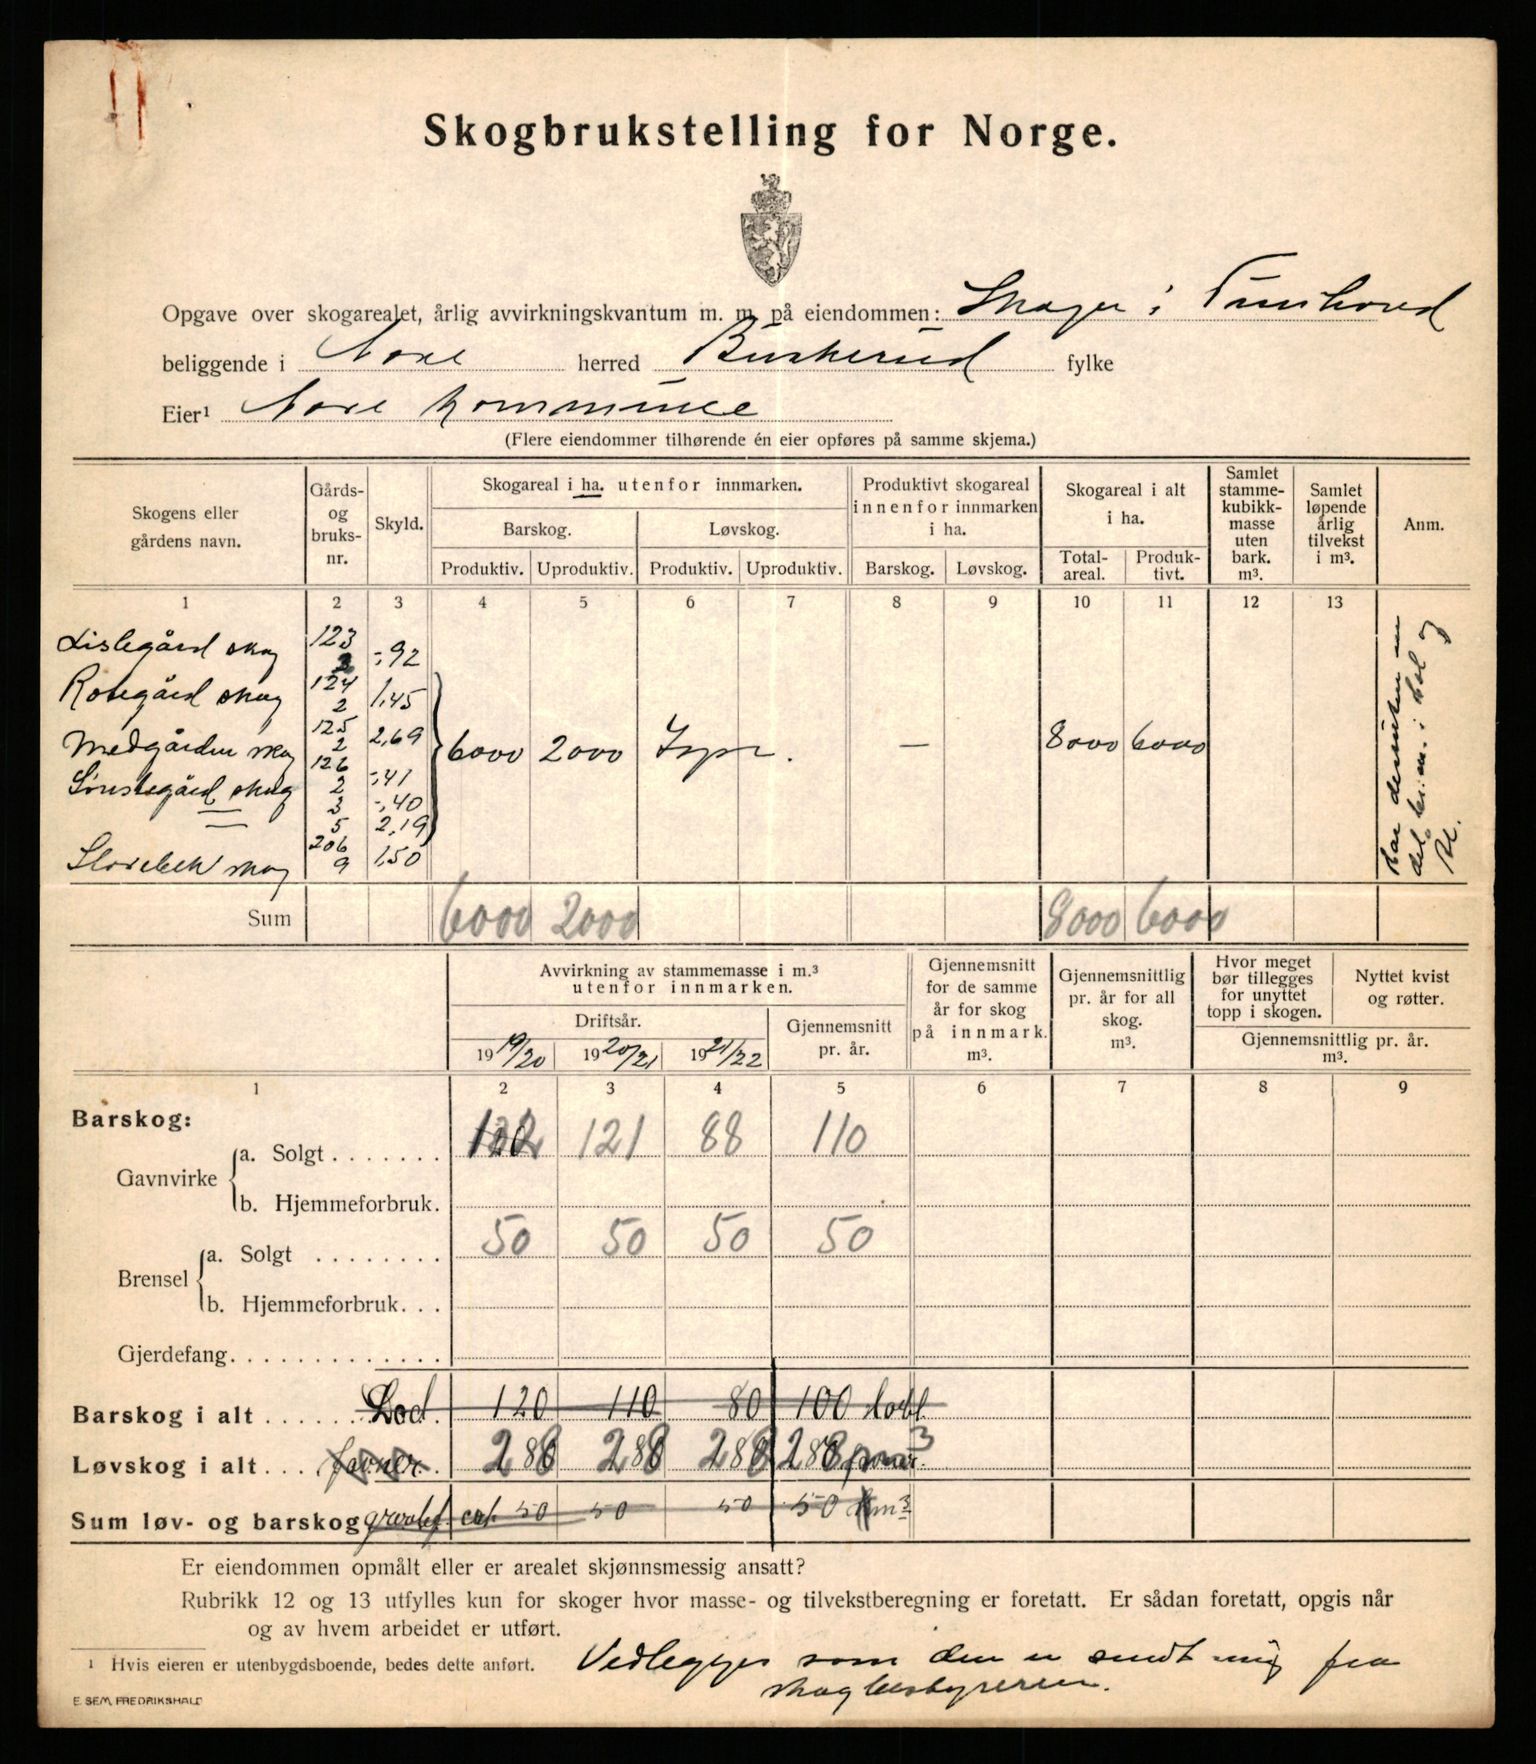 Skogbrukstelling for Norge.
Opgave over skogarealet, årlig avvirkningskvantum m. m. på eiendommen: Skoger i Tunhovd
beliggende i Nore herred Buskerud fylke
Eier¹ Nore kommune
(Flere eiendommer tilhørende én eier opføres på samme skjema.)
Skogens eller gårdens navn.
Gårds- og bruks- nr.
Skyld.
Skogareal i ha. utenfor innmarken.
Barskog.
Løvskog.
Produktiv. Uproduktiv. Produktiv. Uproduktiv.
Produktivt skogareal innenfor innmarken i ha.
Barskog. Løvskog.
Skogareal i alt i ha.
Total- areal. Produk- tivt.
Samlet stamme- kubikk- masse uten bark. m³.
Samlet løpende årlig tilvekst i m³.
Anm.
1 2 3 4 5 6 7 8 9 10 11 12 13
Lislegård skog 123 2 -,92
Rosegård skog 124 2 1,45
Medgården skog 125 2 2,69 6000 2000 — 8000 6000
Sønstegård skog 126 2 -,41
3 -,40
5 2,19
Storebek skog 206 9 1,50
Sum 6000 2000 8000 6000
Avvirkning av stammemasse i m.³ utenfor innmarken.
Driftsår.
1919/20 1920/21 1921/22
Gjennemsnitt pr. år.
Gjennemsnitt for de samme år for skog på innmark. m³.
Gjennemsnittlig pr. år for all skog. m³.
Hvor meget bør tillegges for unyttet topp i skogen.
Nyttet kvist og røtter.
Gjennemsnittlig pr. år. m³.
1 2 3 4 5 6 7 8 9
Barskog:
Gavnvirke
a. Solgt . . . . . . . 121 88 110
b. Hjemmeforbruk.
Brensel
a. Solgt . . . . . . . 50 50 50 50
b. Hjemmeforbruk. . .
Gjerdefang. . . . . . . . . . . . .
Barskog i alt . . . . . . 120 110 80 100
Løvskog i alt. . . favner. 280 280 280 280
Sum løv- og barskog 50 50 50 50 m³
Er eiendommen opmålt eller er arealet skjønnsmessig ansatt?
Rubrikk 12 og 13 utfylles kun for skoger hvor masse- og tilvekstberegning er foretatt. Er sådan foretatt, opgis når
og av hvem arbeidet er utført.
¹ Hvis eieren er utenbygdsboende, bedes dette anført.
Vedlegges som den er sendt mig fra
skogbestyreren.
E. SEM, FREDRIKSHALD